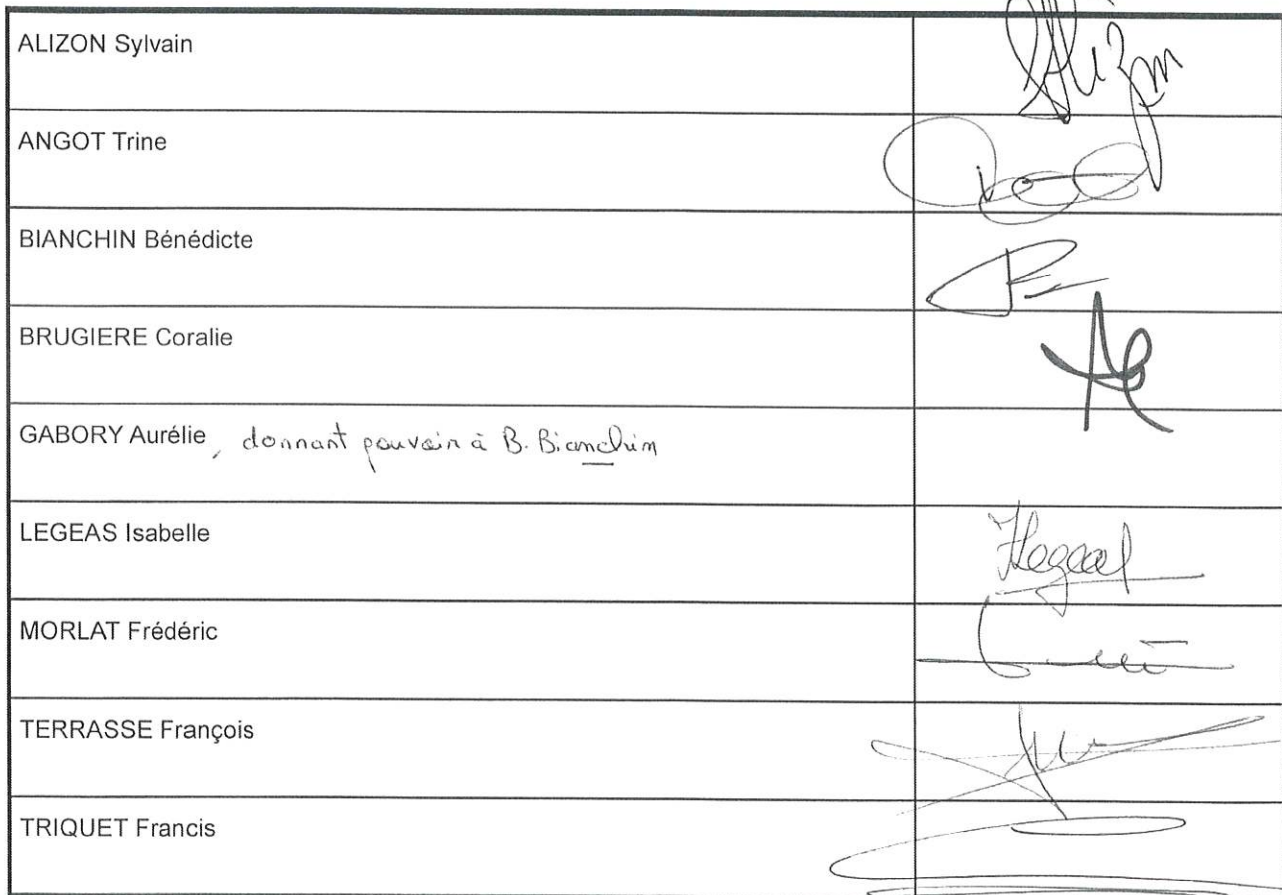 ALIZON Sylvain
ANGOT Trine
BIANCHIN Bénédicte
BRUGIERE Coralie
GABORY Aurélie, donnant pouvoir à B. Bianchin
LEGEAS Isabelle
MORLAT Frédéric
TERRASSE François
TRIQUET Francis